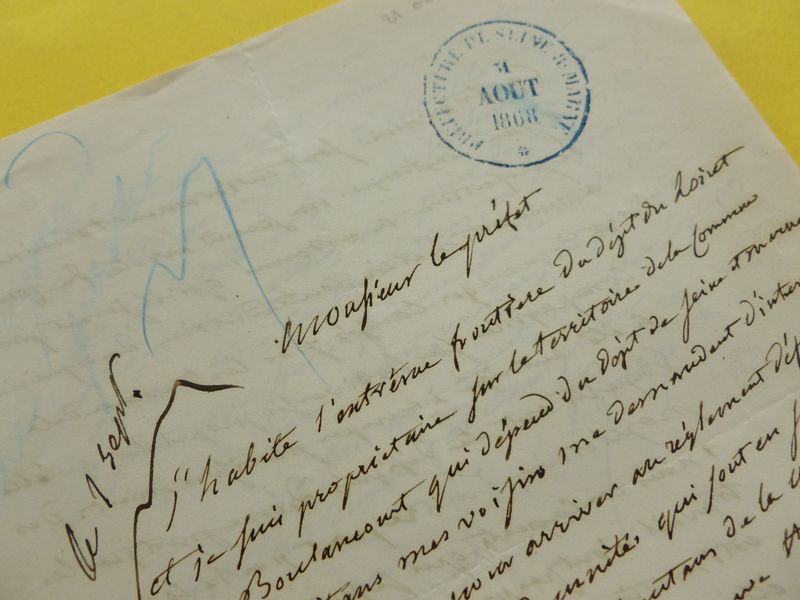 PREFECTURE DE SEINE & MARNE
31
AOUT
1868
Monsieur le préfet
le 1 sept.
J'habite l'extrême frontière du dépt du Loiret
et je suis propriétaire sur le territoire de la Commune
Boulancourt qui dépend du dépt de seine et marne
mes voisins me demandent
pour arriver au règlement
qui sont en
de la